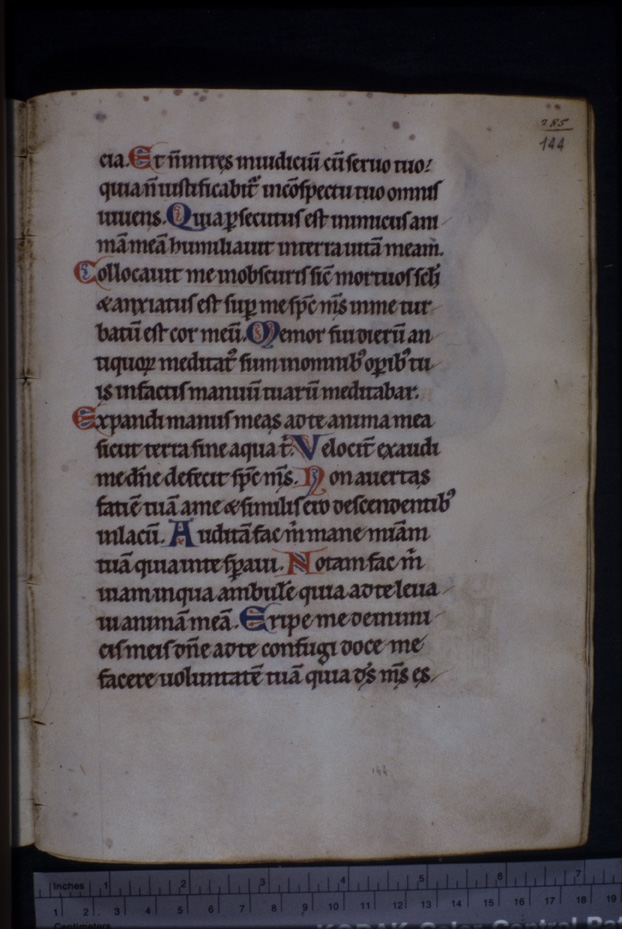 285
144
cia. Et ñ intres in iudiciũ cũ seruo tuo:
quia ñ iustificabit᷑ in cõspectu tuo omnis
uiuens. Quia ꝑsecutus est inimicus ani
mã meã humiliauit in terra uitã meam.
Collocauit me in obscuris sic̃ mortuos sc̃li
& anxiatus est sup̱ me sp̃c m̃s in me tur
batũ est cor meũ. Memor fui dierũ an
tiquoꝝ meditat᷒ sum in omnib᷒ oꝑib᷒ tu
is in factis manuũ tuarũ meditabar.
Expandi manus meas ad te anima mea
sicut terra sine aqua t̃. Velocit̃ exaudi
me dñe defecit sp̃c m̃s. Non auertas
faciẽ tuã a me & similis ero descendentib᷒
in lacũ. Auditã fac m̃ mane mĩam
tuã quia in te sp̱aui. Notam fac m̃
uiam in qua ambulẽ quia ad te leua
ui animã meã. Eripe me de inimi
cis meis dñe ad te confugi doce me
facere uoluntatẽ tuã quia ds̃ m̃s es.
144
Inches 1 2 3 4 5 6 7
1 2 3 4 5 6 7 8 9 10 11 12 13 14 15 16 17 18 19
Centimetres
KODAK Color Control Pat